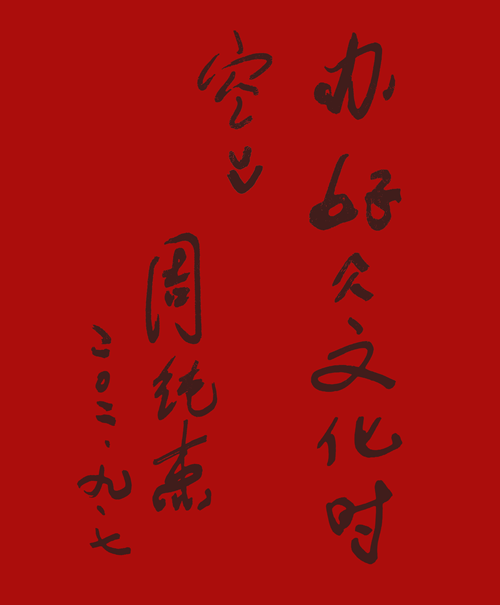 办好人文化时
空
周纯杰
二〇二.九.七